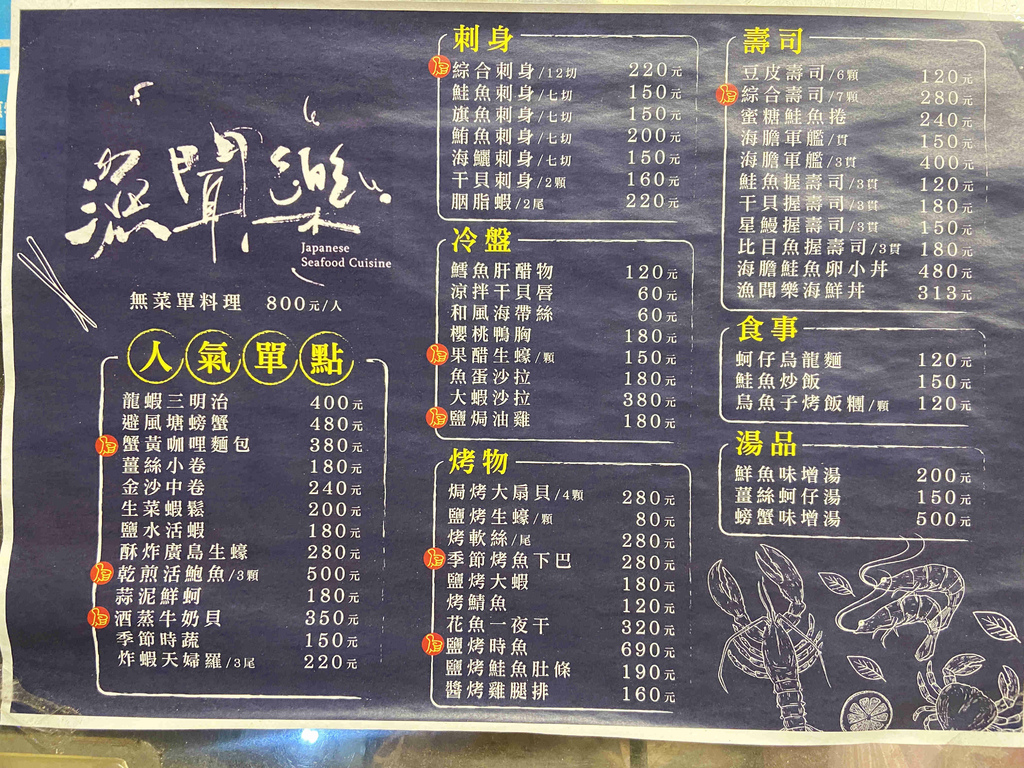 漁聞樂
Japanese
Seafood Cuisine
無菜單料理 800元/人
人氣單點
龍蝦三明治 400元
避風塘螃蟹 480元
蟹黃咖哩麵包 380元
薑絲小卷 180元
金沙中卷 240元
生菜蝦鬆 200元
鹽水活蝦 180元
酥炸廣島生蠔 280元
乾煎活鮑魚/3顆 500元
蒜泥鮮蚵 180元
酒蒸牛奶貝 350元
季節時蔬 150元
炸蝦天婦羅/3尾 220元
刺身
綜合刺身/12切 220元
鮭魚刺身/七切 150元
旗魚刺身/七切 150元
鮪魚刺身/七切 200元
海鱺刺身/七切 150元
干貝刺身/2顆 160元
胭脂蝦/2尾 220元
冷盤
鱈魚肝醋物 120元
涼拌干貝唇 60元
和風海帶絲 60元
櫻桃鴨胸 180元
果醋生蠔/顆 150元
魚蛋沙拉 180元
大蝦沙拉 380元
鹽焗油雞 180元
烤物
焗烤大扇貝/4顆 280元
鹽烤生蠔/顆 80元
烤軟絲/尾 280元
季節烤魚下巴 280元
鹽烤大蝦 180元
烤鯖魚 120元
花魚一夜干 320元
鹽烤時魚 690元
鹽烤鮭魚肚條 190元
醬烤雞腿排 160元
壽司
豆皮壽司/6顆 120元
綜合壽司/7顆 280元
蜜糖鮭魚捲 240元
海膽軍艦/貫 150元
海膽軍艦/3貫 400元
鮭魚握壽司/3貫 120元
干貝握壽司/3貫 180元
星鰻握壽司/3貫 150元
比目魚握壽司/3貫 180元
海膽鮭魚卵小丼 480元
漁聞樂海鮮丼 313元
食事
蚵仔烏龍麵 120元
鮭魚炒飯 150元
烏魚子烤飯糰/顆 120元
湯品
鮮魚味增湯 200元
薑絲蚵仔湯 150元
螃蟹味增湯 500元